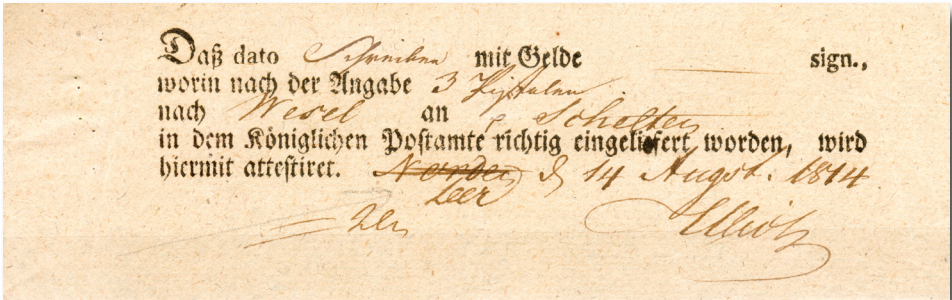 Daß dato Schreiben mit Gelde sign.,
worin nach der Angabe 3 Pistolen
nach Wesel an Schelten
in dem Königlichen Postamte richtig eingeliefert worden, wird
hiermit attestiret. Norden d 14 August. 1814
Leer